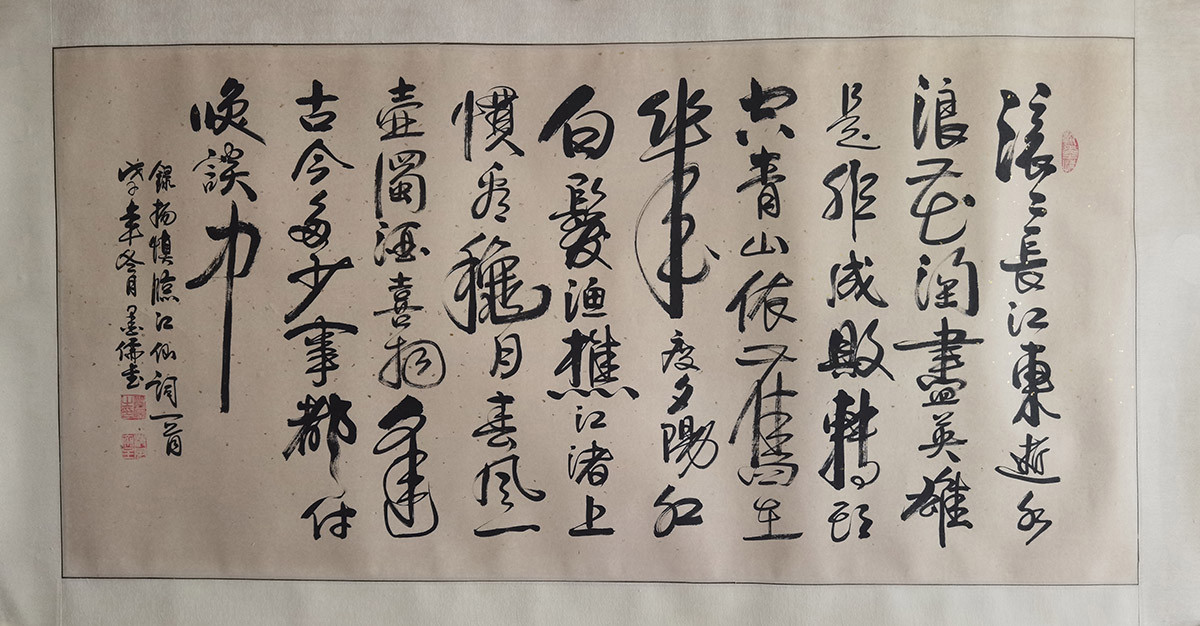 滚〻長江東逝水
浪花淘盡英雄
是非成敗轉頭
空青山依舊在
幾度夕陽紅
白髮漁樵江渚上
慣看穐月春風一
壺濁酒喜相逢
古今多少事都付
咲談中
錄楊慎臨江仙詞一首
戊子年冬月墨儒書